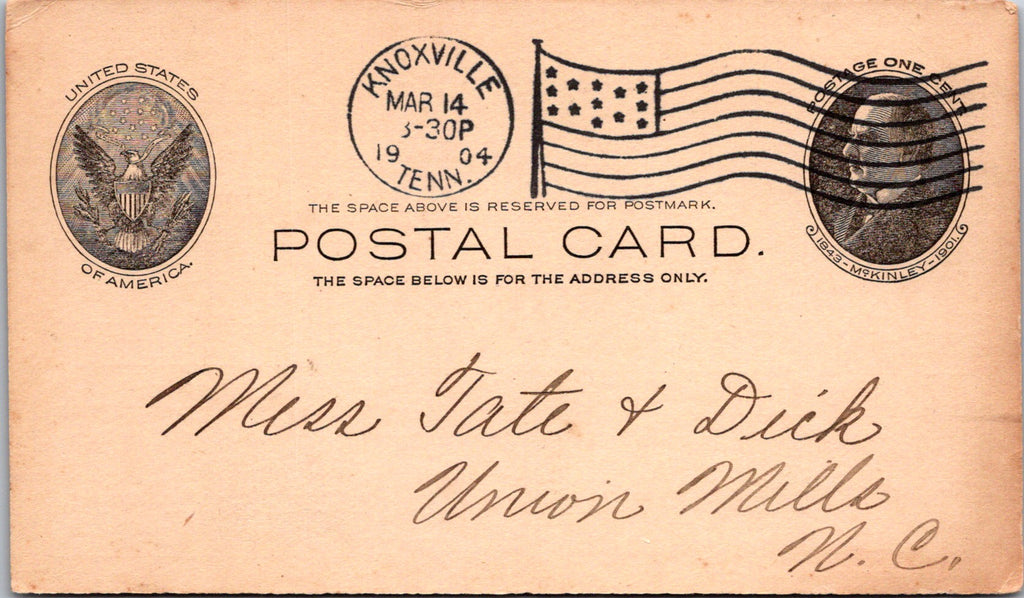 UNITED STATES
OF AMERICA.
KNOXVILLE
MAR 14
3-30P
19 04
TENN.
POSTAGE ONE CENT
1843-McKINLEY-1901.
THE SPACE ABOVE IS RESERVED FOR POSTMARK.
POSTAL CARD.
THE SPACE BELOW IS FOR THE ADDRESS ONLY.
Mess Tate & Dick
Union Mills
N. C.